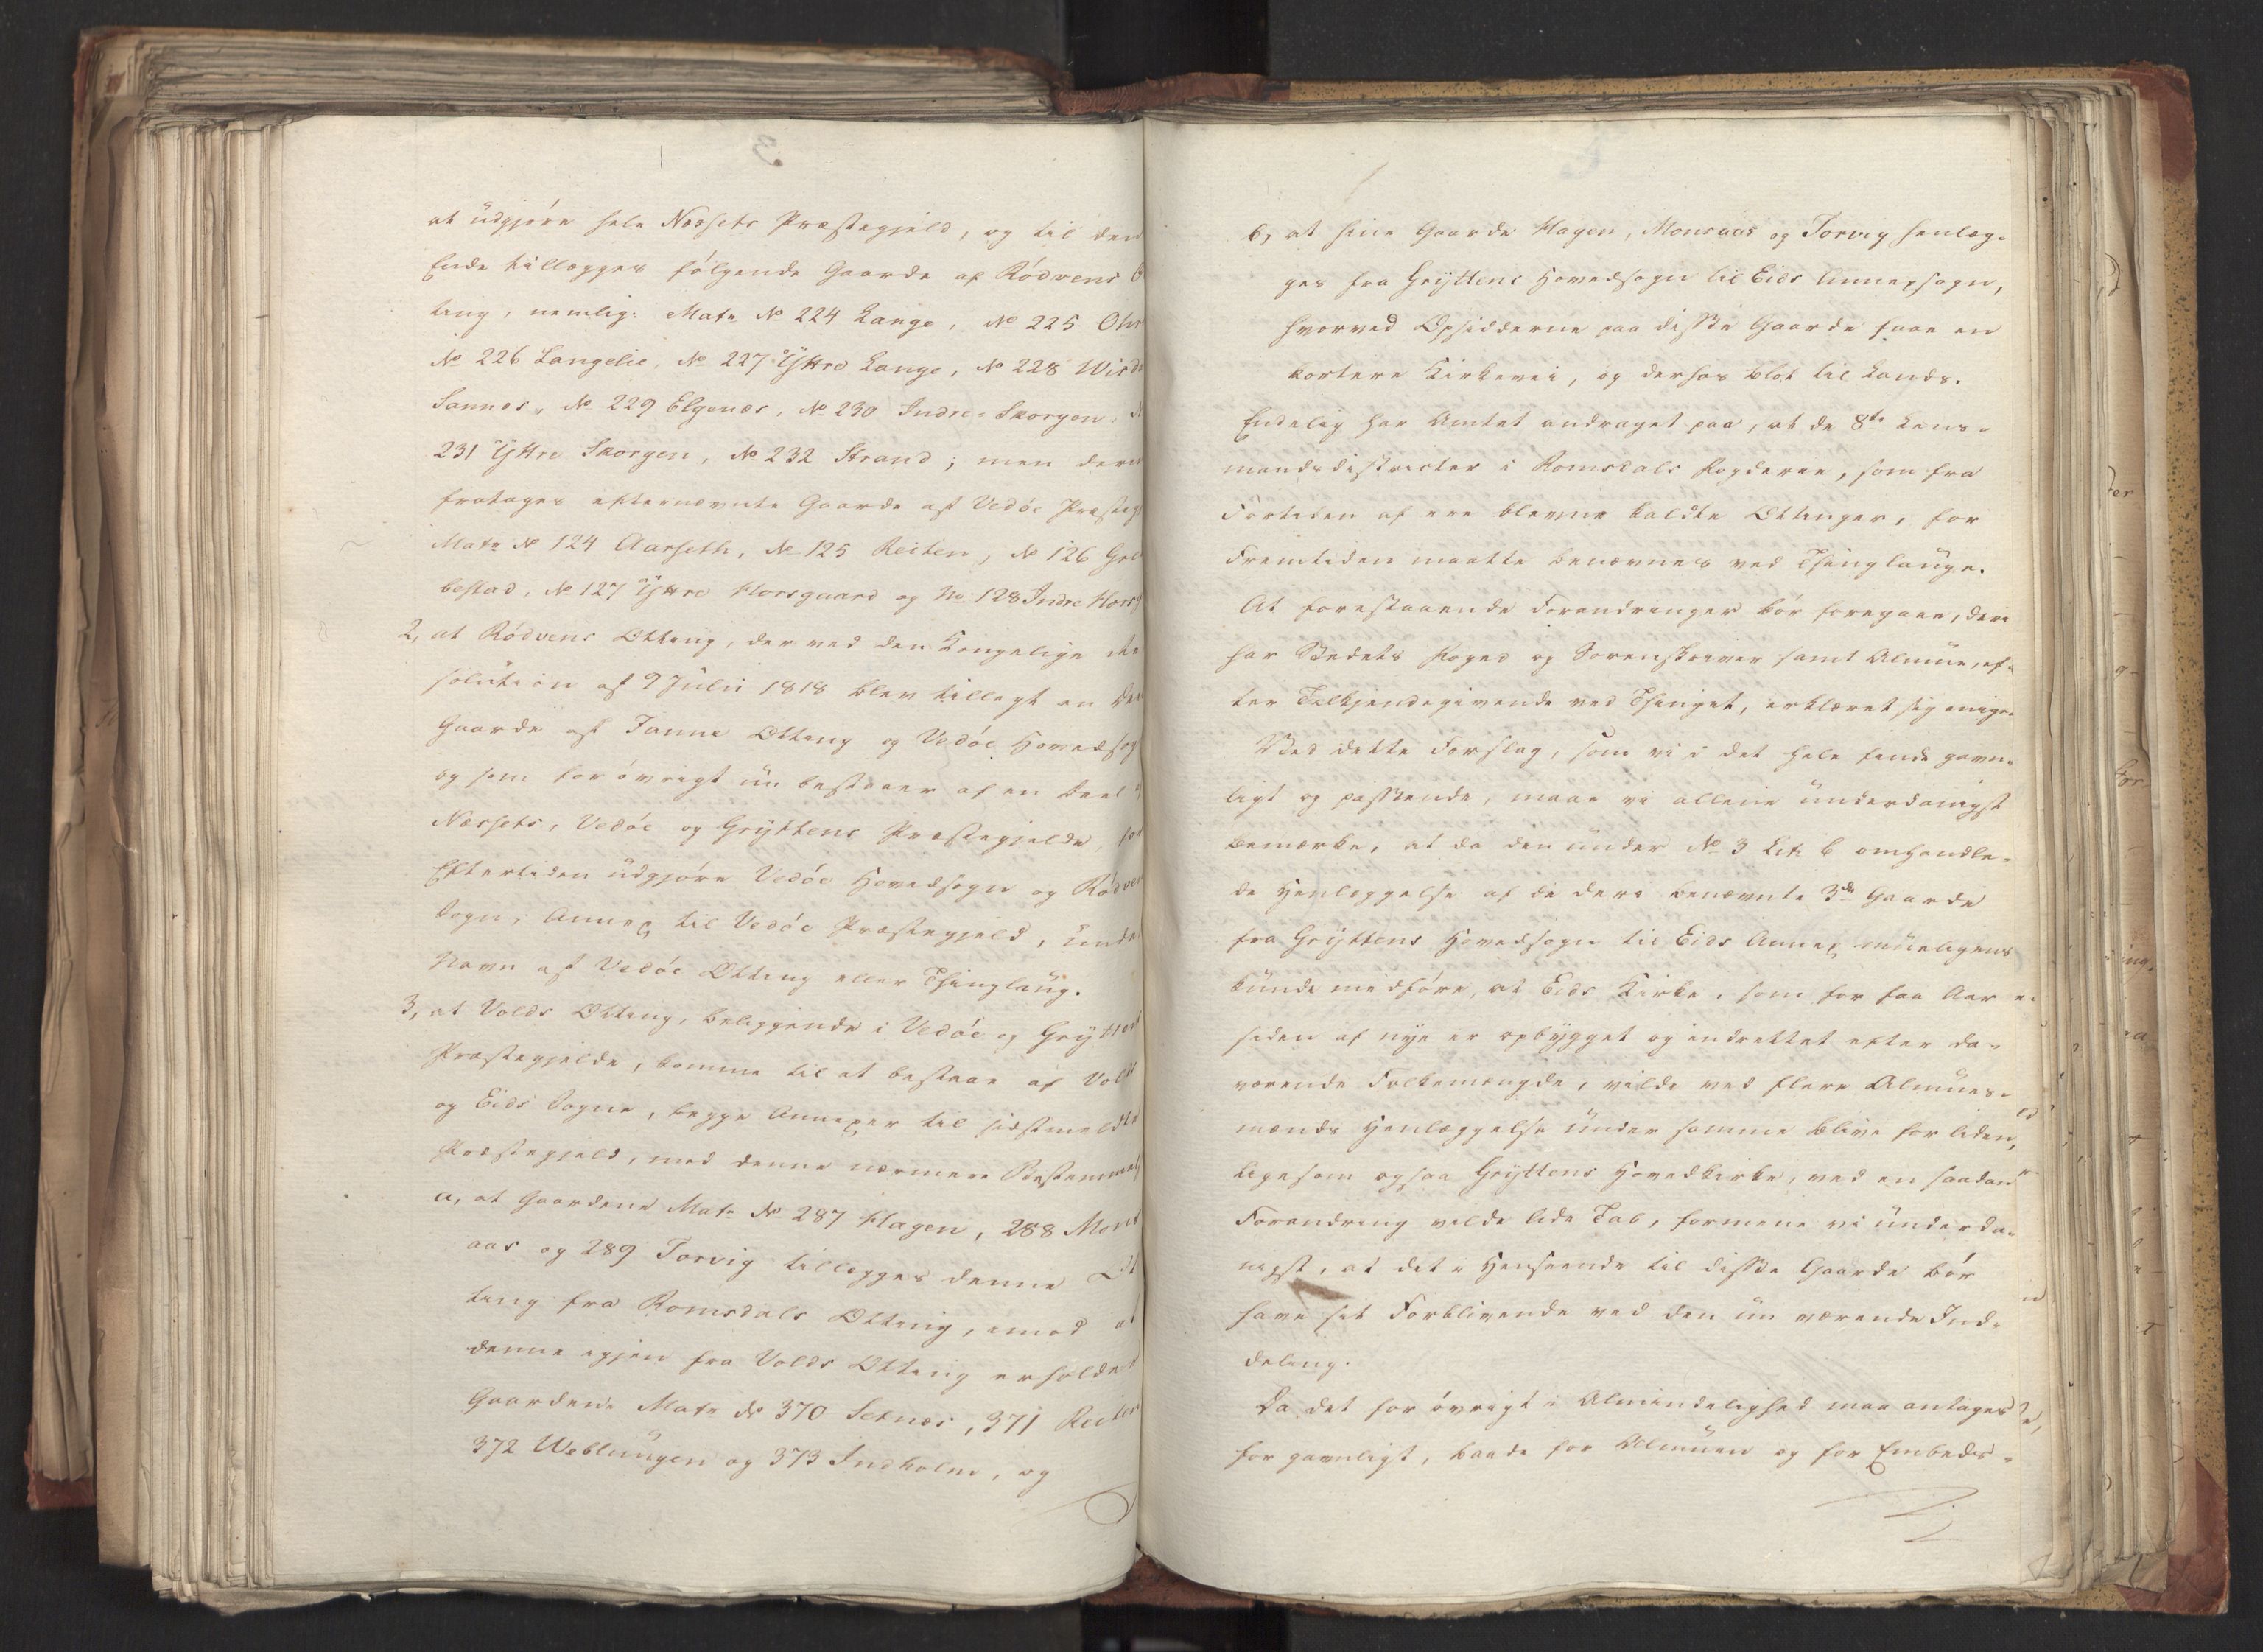 at udgjøre hele Næssets Præstegjeld, og til den
Ende tillægges følgende Gaarde af Rødvens O
ting, nemlig: Matr. No 224 Lange, No 225 Ohr
No 226 Langelie, No 227 Yttre Lange, No 228
Sannes, No 229 Elgenæs, No 230 Indre-Skorgen, N
231 Yttre Skorgen, No 232 Strand; men derim
fratages efternævnte Gaarde af Vedøe Præsteg
Matr No 124 Aarseth, No 125 Reiten, No 126 Gre
bestad, No 127 Yttre Horsgaard og No 128 Indre Horsg
2, at Rødvens Otting, der ved den Kongelige Re
solution af 9 Julii 1818 blev tillagt en Deel
Gaarde af Fanne Otting og Vedøe Hovedsog
og som forøvrigt nu bestaaer af en Deel
Næssets, Vedøe og Gryttens Præstegjelde, for
Eftertiden udgjøre Vedøe Hovedsogn og Rødven
Sogn, Annex til Vedøe Præstegjeld, under
Navn af Vedøe Otting eller Thinglaug.
3, at Volds Otting, beliggende i Vedøe og Gryttens
Præstegjelde, komme til at bestaae af Volds
og Eids Sogne, begge Annexer til sidstmeldte
Præstegjeld, med denne nærmere Bestemmels
a, at Gaardene Matr No 287 Hagen, 288 Mons
aas og 289 Torvig tillægges denne Ot
ting fra Romsdals Otting, imod at
denne igjen fra Volds Otting erholder
Gaardene Matr No 370 Setnæs, 371 Reiten
372 Weblungen og 373 Indholm, og
b, at hine Gaarde Hagen, Monsaas og Torvig henlæg-
ges fra Gryttens Hovedsogn til Eids Annexsogn,
hvorved Opsidderne paa disse Gaarde faae en
kortere Kirkevei, og derhos blot til Lands.
Endelig har Amtet andraget paa, at de 8te Lens-
mandsdistricter i Romsdals Fogderie, som fra
Fortiden af ere blevne kaldte Ottinger, for
Fremtiden maatte benævnes ved Thinglauge.
At forestaaende Forandringer bør foregaae, deri
har Stedets Foged og Sorenskriver samt Almue, ef-
ter Tilkjendegivende ved Thinget, erklæret sig enige.
Ved dette Forslag, som vi i det Hele finde gavn-
ligt og passende, maae vi allene underdanigst
bemærke, at da den under No 3 Lit. b omhandle-
de Henlæggelse af de deri benævnte 3de Gaarde
fra Gryttens Hovedsogn til Eids Annex mueligens
kunde medføre, at Eids Kirke, som for faa Aar
siden af nye er opbygget og indrettet efter da-
værende Folkemængde, vilde ved flere Almues-
mænds Henlæggelse under samme blive for liden,
ligesom ogsaa Gryttens Hovedkirke, ved en saadan
Forandring vilde lide Tab, formene vi underda-
nigst, at det i Henseende til disse Gaarde bør
have sit Forblivende ved den nu værende Ind-
deling.
Da det forøvrigt i Almindelighed maa antages
for gavnligt, baade for Almuen og for Embeds-